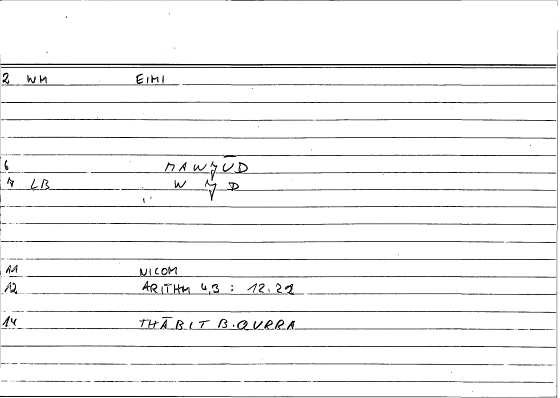 2 WM EIMI
6 MAWǧŪD
7 LB W ǧ D
11 NICOM
12 ARITHM 4,3 : 12.22
14 THĀBIT B.QURRA